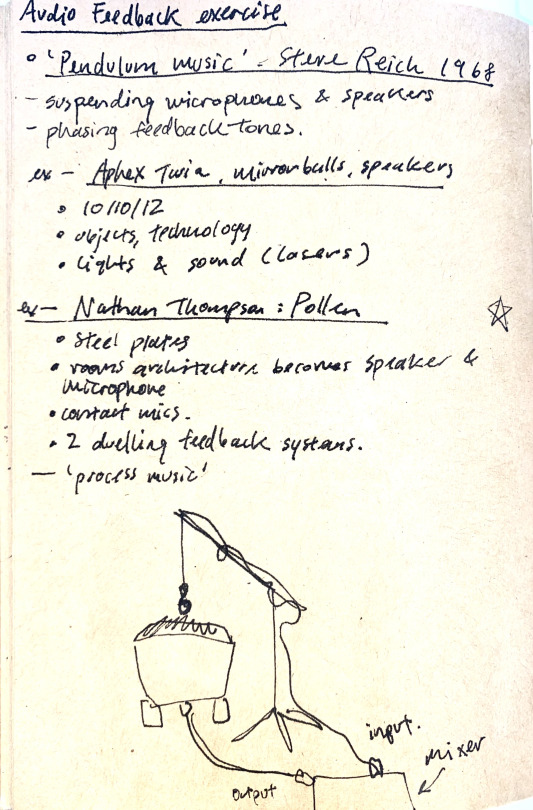 Audio Feedback exercise
• 'Pendulum music' - Steve Reich 1968
- suspending microphones & speakers
- phasing feedback tones.
ex - Aphex Twin, mirrorballs, speakers
• 10/10/12
• objects, technology
• Lights & sound (lasers)
ex - Nathan Thompson : Pollen
• Steel plates
• rooms architecture becomes speaker &
microphone
• contact mics.
• 2 duelling feedback systems.
- 'process music'
input.
mixer
output